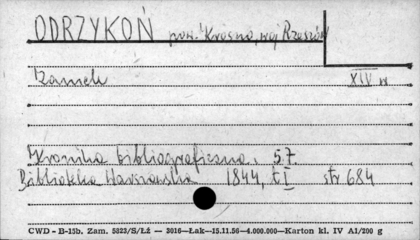 ODRZYKOŃ pow. Krosno, woj. Rzeszów
Zamek XIV w
Kronika bibliograficzna. 57.
Biblioteka Warszawska 1844, t I str 684
CWD - B-15b. Zam. 5823/S/Łź — 3016—Łak—15.11.56—4.000.000—Karton kl. IV A1/200 g